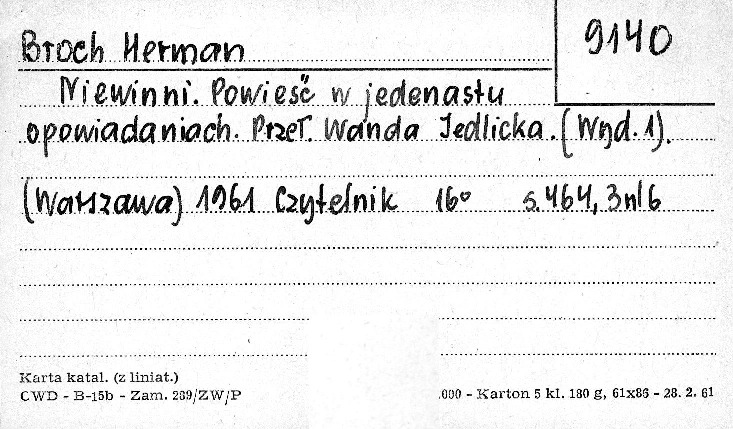 Broch Herman
9140
Niewinni. Powieść w jedenastu
opowiadaniach. Przeł. Wanda Jedlicka. (Wyd. 1).
(Warszawa) 1961 Czytelnik 16° s. 464, 3nlb
Karta katal. (z liniat.)
CWD - B-15b - Zam. 289/ZW/P
.000 - Karton 5 kl. 180 g, 61x86 - 28. 2. 61